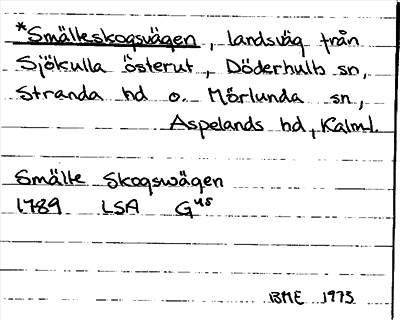 *Smälleskogsvägen, landsväg från
Sjökulla österut, Döderhults sn,
Stranda hd o. Mörlunda sn,
Aspelands hd, Kalm l.
Smälte Skogswägen
1789 LSA G45
BME 1973